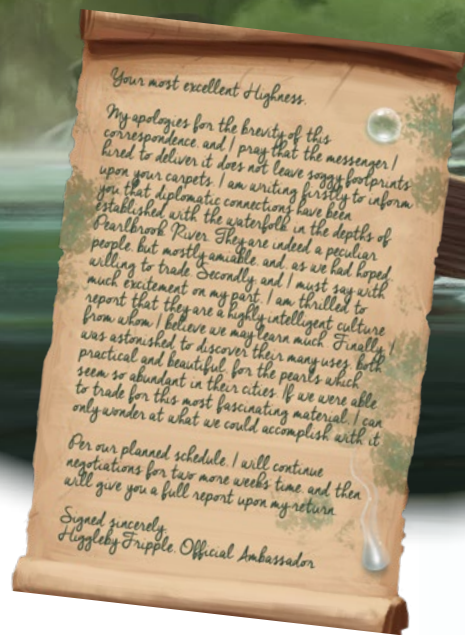 Your most excellent Highness,
My apologies for the brevity of this
correspondence, and I pray that the messenger I
hired to deliver it does not leave soggy footprints
upon your carpets. I am writing firstly to inform
you that diplomatic connections have been
established with the waterfolk in the depths of
Pearlbrook River. They are indeed a peculiar
people, but mostly amiable, and, as we had hoped,
willing to trade. Secondly, and I must say with
much excitement on my part, I am thrilled to
report that they are a highly intelligent culture
from whom I believe we may learn much. Finally, I
was astonished to discover their many uses, both
practical and beautiful, for the pearls which
seem so abundant in their cities. If we were able
to trade for this most fascinating material, I can
only wonder at what we could accomplish with it.
Per our planned schedule, I will continue
negotiations for two more weeks time, and then
will give you a full report upon my return.
Signed sincerely,
Higgleby Fripple, Official Ambassador